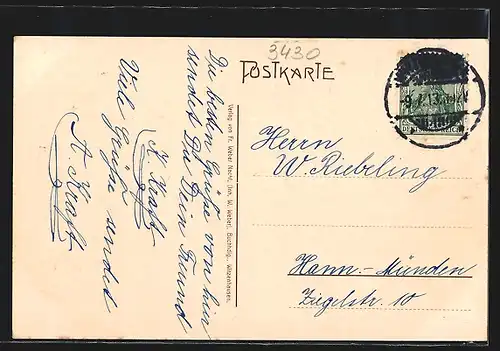 3430
POSTKARTE
Die besten Grüße von hier
sendet Dir Dein Freund
K. Kraft
Viele Grüße sendet
A. Kraft
Verlag von Fr. Weber Nachf. (Inh. W. Weber), Buchhdlg., Witzenhausen.
Herrn
W. Riebeling
Hann.-Münden
Ziegelstr. 10